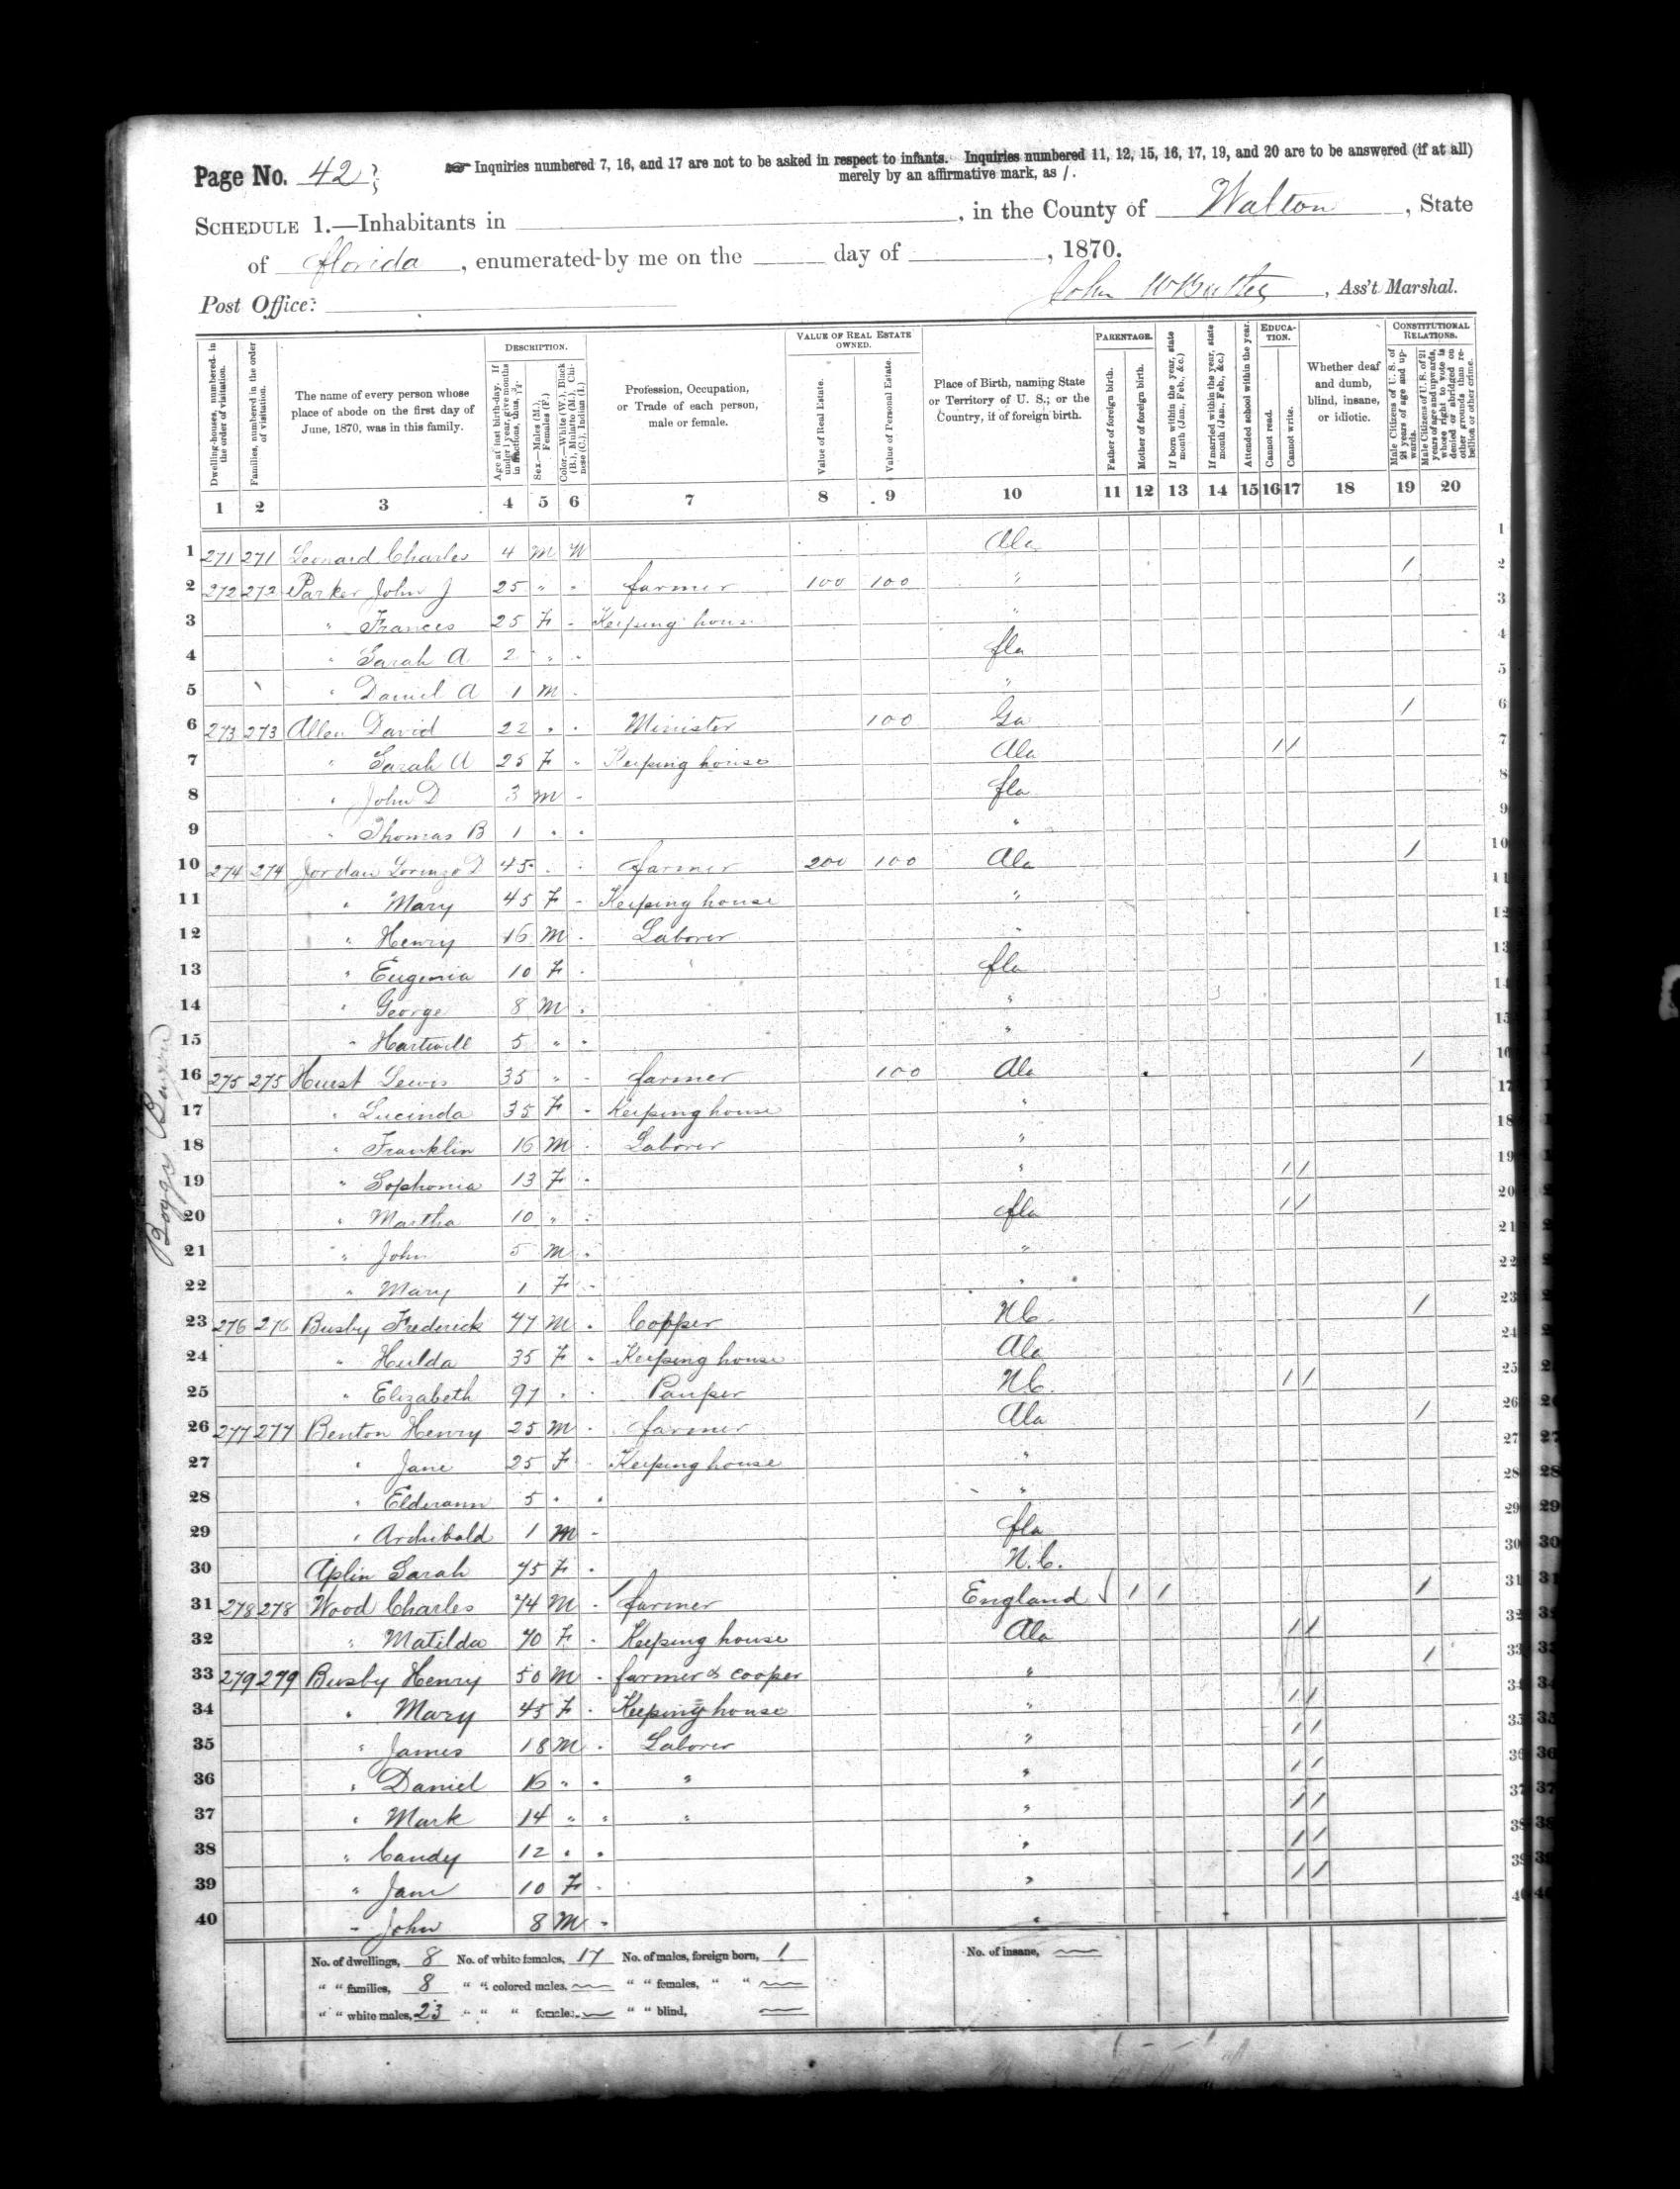 Page No. 42
Inquiries numbered 7, 16, and 17 are not to be asked in respect to infants. Inquiries numbered 11, 12, 15, 16, 17, 19, and 20 are to be answered (if at all)
merely by an affirmative mark, as /.
SCHEDULE 1.—Inhabitants in , in the County of Walton, State
of Florida, enumerated by me on the day of , 1870.
Post Office: John W , Ass't Marshal.
Dwelling-houses, numbered in the order of visitation.
Families, numbered in the order of visitation.
The name of every person whose place of abode on the first day of June, 1870, was in this family.
DESCRIPTION.
Age at last birth-day. If under 1 year, give months in fractions, thus,
Sex.—Males (M.), Females (F.)
Color.—White (W.), Black (B.), Mulatto (M.), Chinese (C.), Indian (I.)
Profession, Occupation, or Trade of each person, male or female.
VALUE OF REAL ESTATE OWNED.
Value of Real Estate.
Value of Personal Estate.
Place of Birth, naming State or Territory of U. S.; or the Country, if of foreign birth.
PARENTAGE.
Father of foreign birth.
Mother of foreign birth.
If born within the year, state month (Jan., Feb., &c.)
If married within the year, state month (Jan., Feb., &c.)
Attended school within the year.
EDUCATION.
Cannot read.
Cannot write.
Whether deaf and dumb, blind, insane, or idiotic.
CONSTITUTIONAL RELATIONS.
Male Citizens of U. S. of 21 years of age and upwards.
Male Citizens of U. S. of 21 years of age and upwards, whose right to vote is denied or abridged on other grounds than rebellion or other crime.
1 2 3 4 5 6 7 8 9 10 11 12 13 14 15 16 17 18 19 20
1 271 271 Leonard Charles 4 M W Ala 1
2 272 272 Parker John J 25 " " farmer 100 100 " / 2
3 " Frances 25 F " Keeping house " 3
4 " Sarah A 2 " " fla 4
5 " Daniel A 1 M " " 5
6 273 273 Allen David 22 " " Minister 100 Ga / 6
7 " Sarah A 25 F " Keeping house Ala / / 7
8 " John D 3 M " fla 8
9 " Thomas B 1 " " " 9
10 274 274 Jordan Lorenzo D 45 " " farmer 200 100 Ala / 10
11 " Mary 45 F " Keeping house " 11
12 " Henry 16 M " Laborer " 12
13 " Eugenia 10 F " fla 13
14 " George 8 M " " 14
15 " Hartwell 5 " " " 15
16 275 275 Hurst Lewis 35 " " farmer 100 Ala / 16
17 " Lucinda 35 F " Keeping house " 17
18 " Franklin 16 M " Laborer " 18
19 " Sophonia 13 F " " / / 19
20 " Martha 10 " " fla / / 20
21 " John 5 M " " 21
22 " Mary 1 F " " 22
23 276 276 Busby Frederick 47 M " Copper N C. / 23
24 " Hulda 35 F " Keeping house Ala 24
25 " Elizabeth 97 " " Pauper N C. / / 25
26 277 277 Benton Henry 25 M " farmer Ala / 26
27 " Jane 25 F " Keeping house " 27
28 " Elderann 5 " " " 28
29 " Archibald 1 M " fla 29
30 Aplin Sarah 75 F " N.C. 30
31 278 278 Wood Charles 74 M " farmer England / / / 31
32 " Matilda 70 F " Keeping house Ala / / 32
33 279 279 Busby Henry 50 M " farmer & cooper " / 33
34 " Mary 45 F " Keeping house " / / 34
35 " James 18 M " Laborer " / / 35
36 " Daniel 16 " " " " / / 36
37 " Mark 14 " " " " / / 37
38 " Candy 12 " " " / / 38
39 " Jane 10 F " " / / 39
40 " John 8 M " " 40
No. of dwellings, 8 No. of white females, 17 No. of males, foreign born, 1 No. of insane,
" " families, 8 " " colored males, " " females, " "
" " white males, 23 " " " females, " " blind,